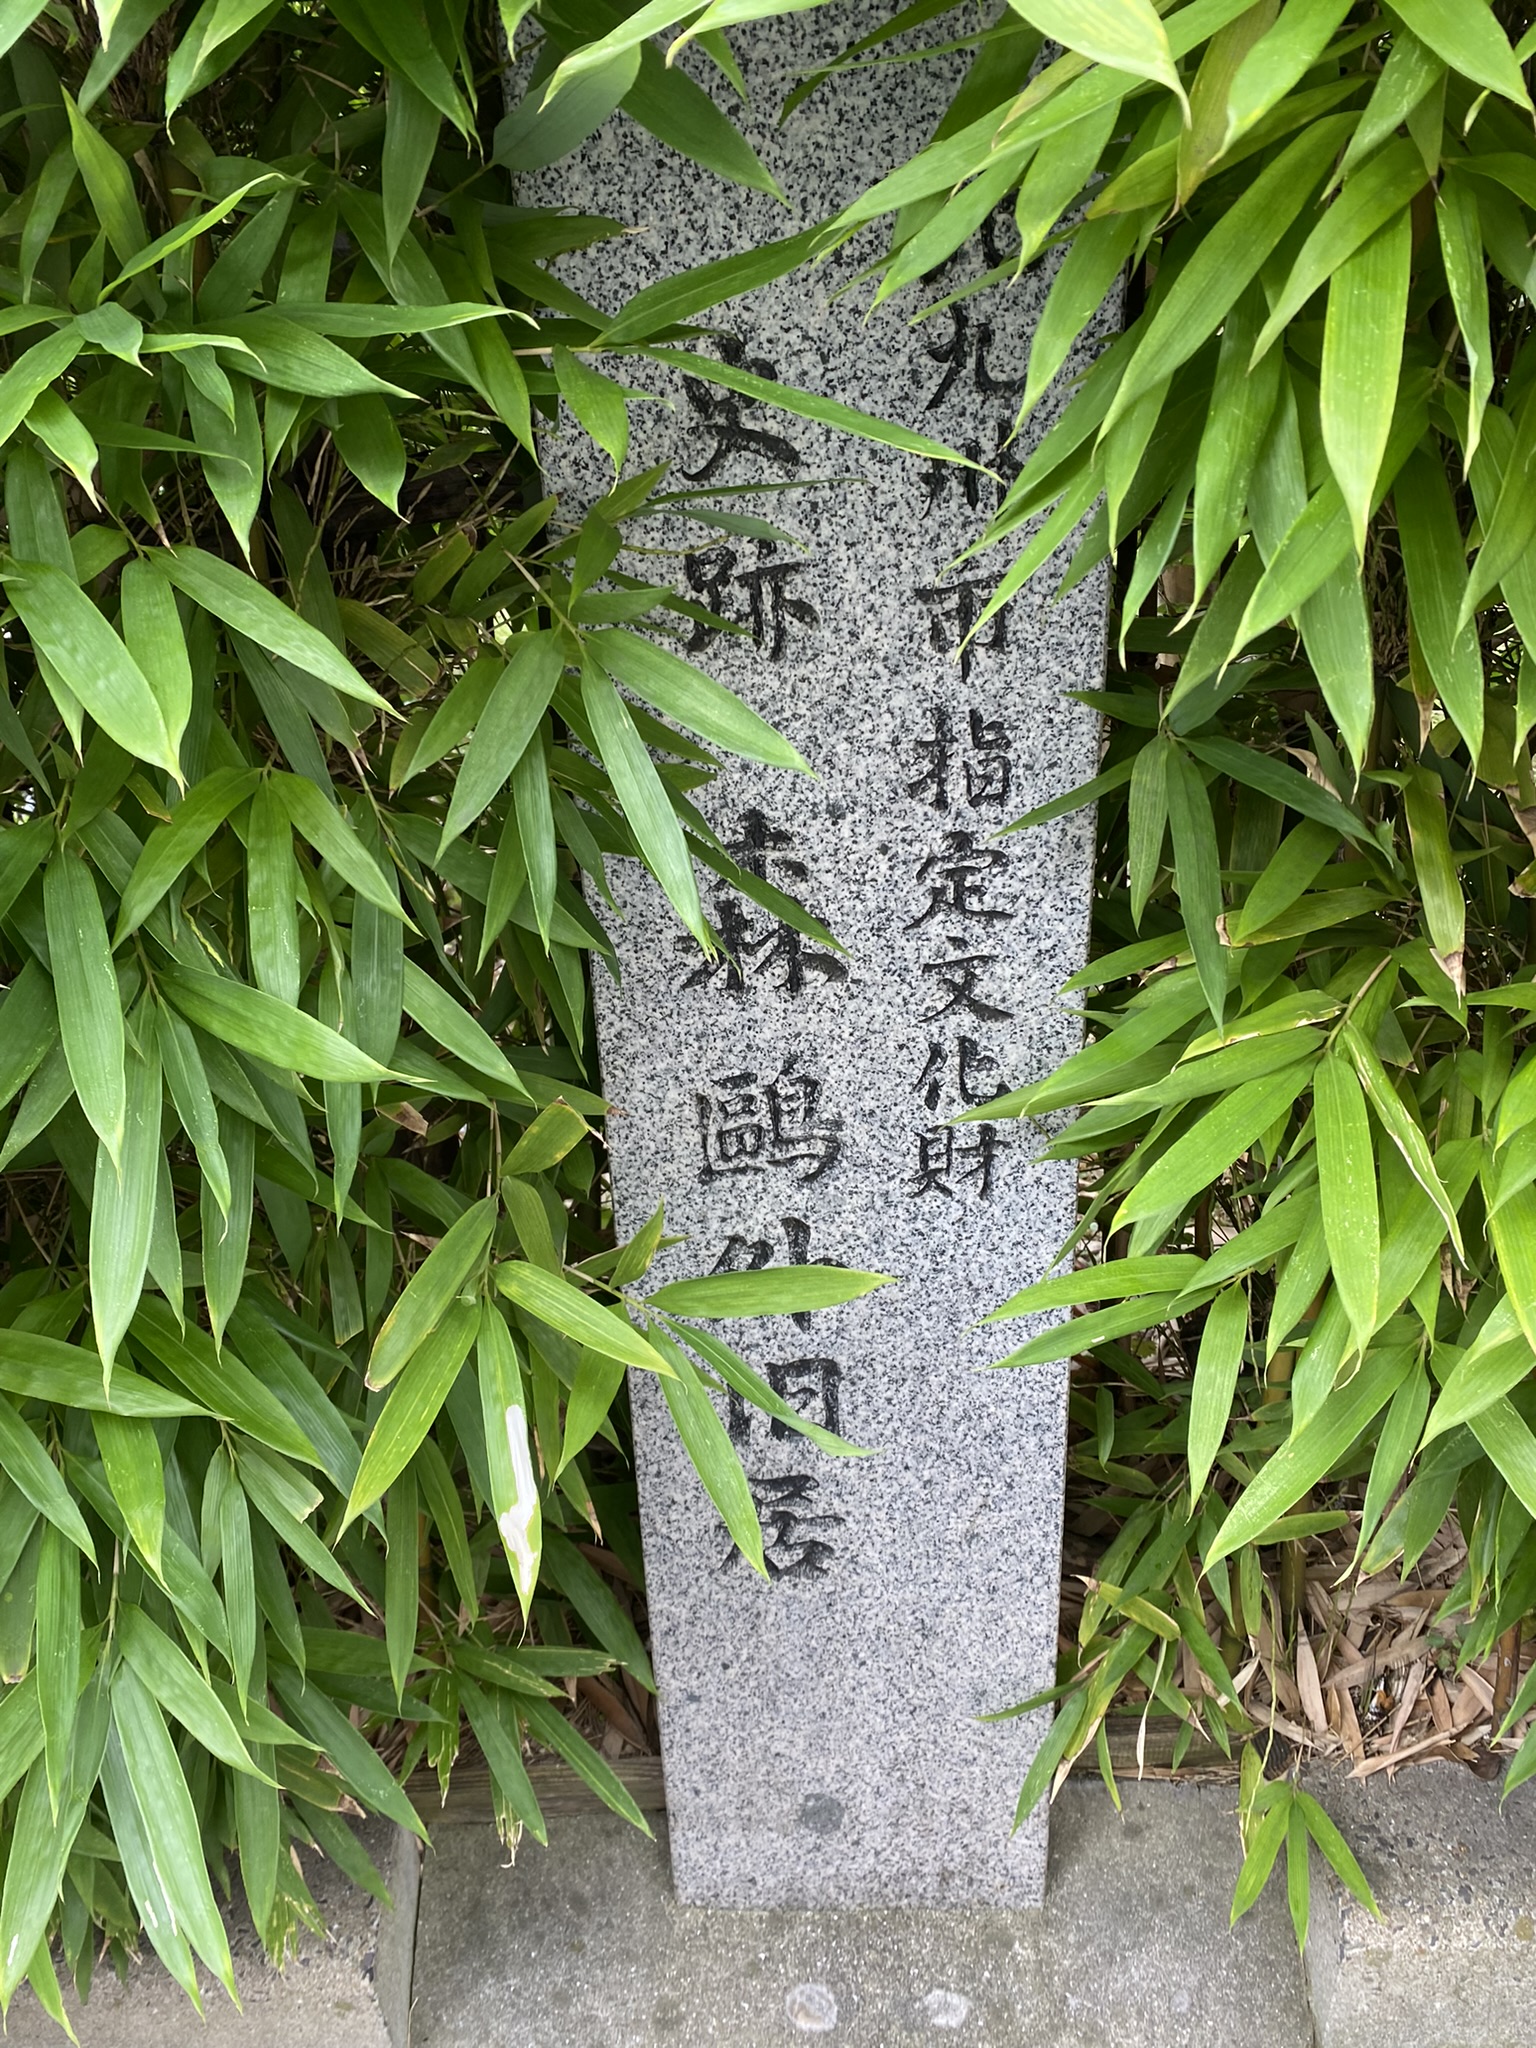 九州市指定文化財
史跡 森鷗外旧居